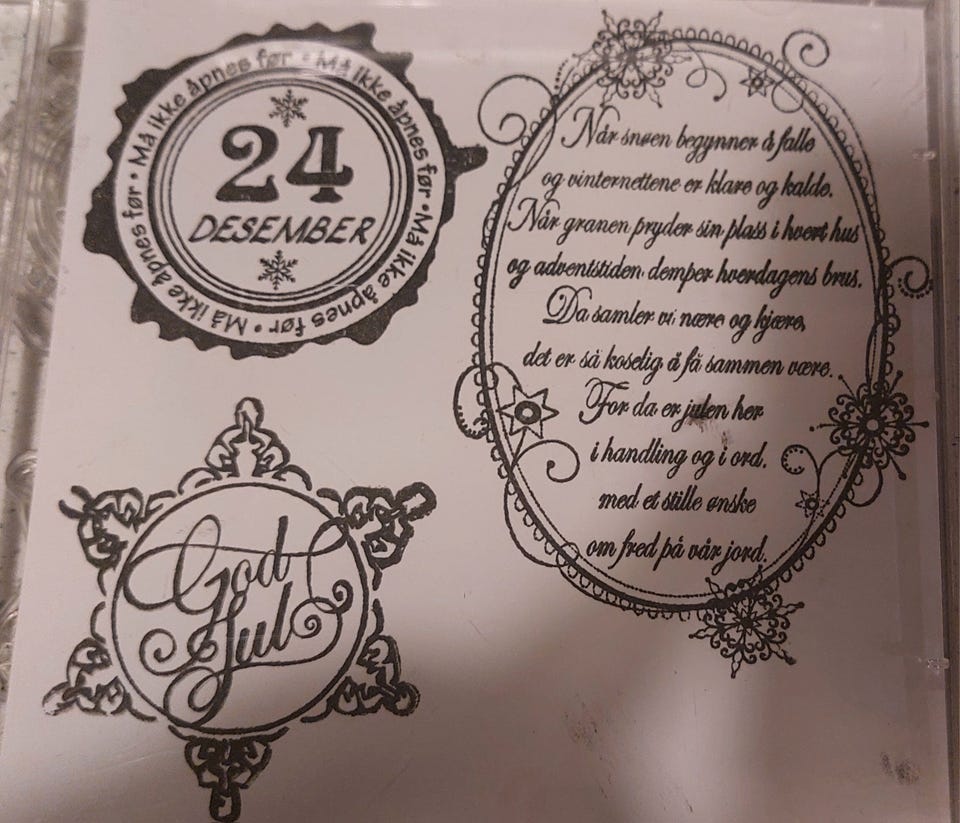 Må ikke åpnes før • Må ikke åpnes før • Må ikke åpnes før • Må ikke åpnes før •
24
DESEMBER
Når snøen begynner å falle
og vinternettene er klare og kalde.
Når granen pryder sin plass i hvert hus
og adventstiden demper hverdagens brus.
Da samler vi nære og kjære,
det er så koselig å få sammen være.
For da er julen her
i handling og i ord,
med et stille ønske
om fred på vår jord.
God
Jul